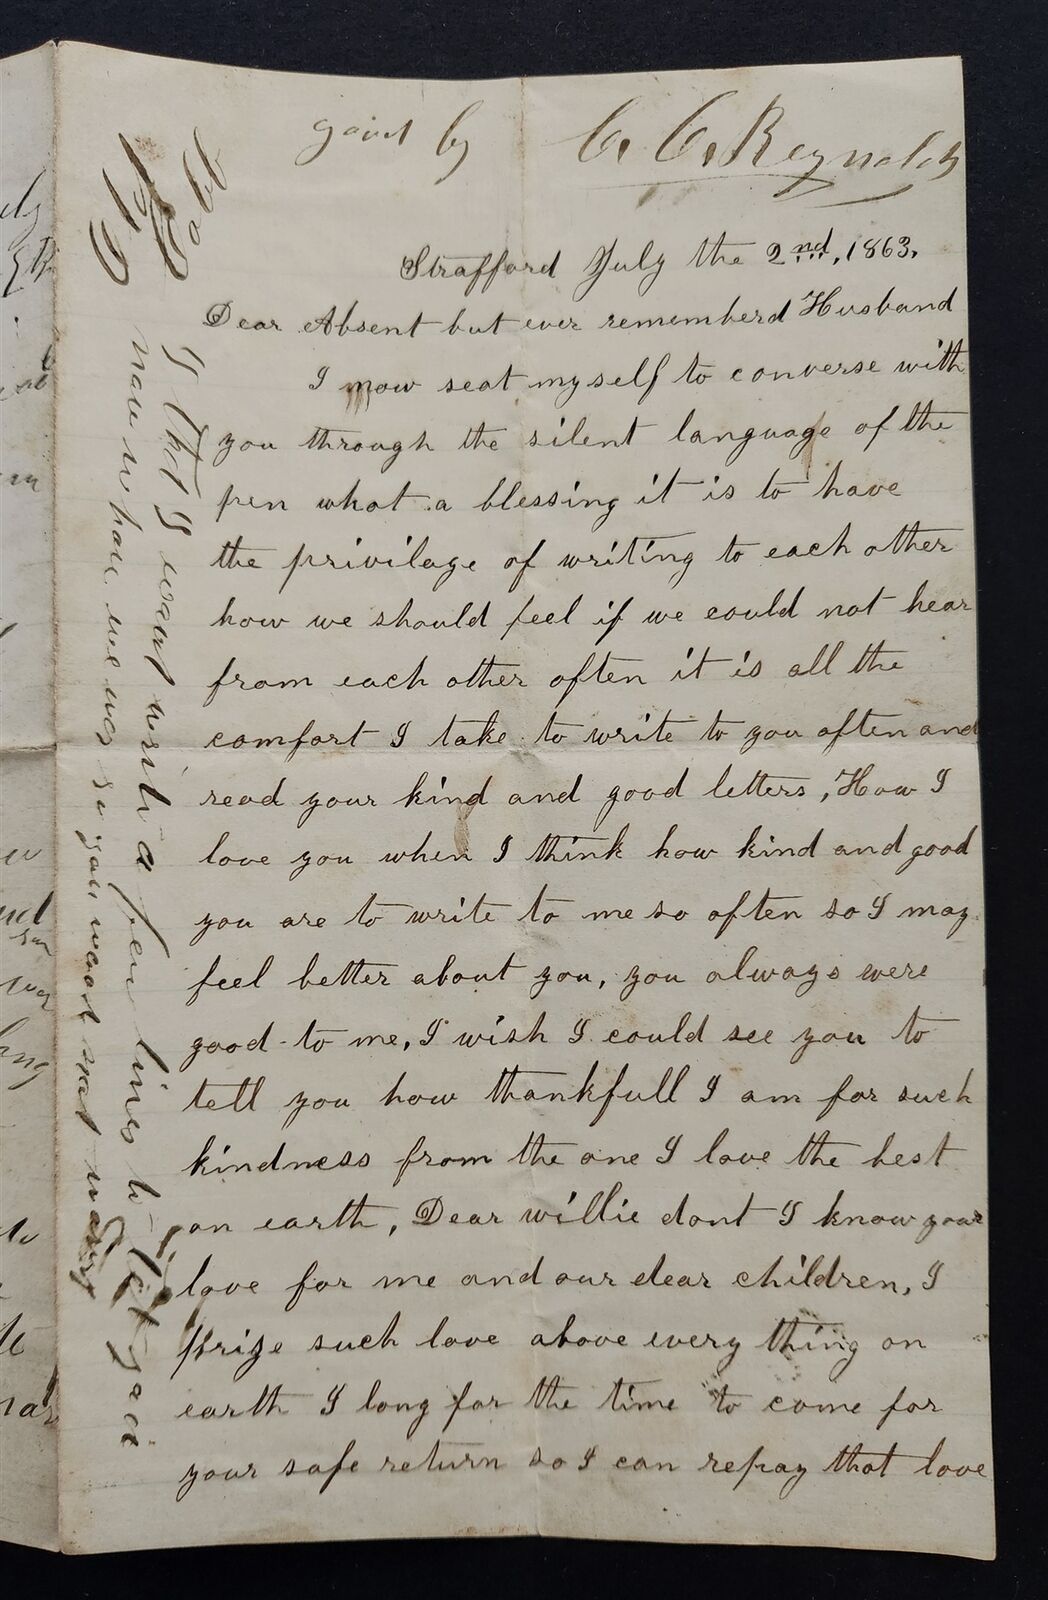 by C. C. Reynolds
Strafford July the 2nd, 1863.
Dear Absent but ever rememberd Husband
I now seat myself to converse with
you through the silent language of the
pen what a blessing it is to have
the privilage of writing to each other
how we should feel if we could not hear
from each other often it is all the
comfort I take to write to you often and
read your kind and good letters, How I
love you when I think how kind and good
you are to write to me so often so I may
feel better about you, you always were
good to me, I wish I could see you to
tell you how thankfull I am for such
kindness from the one I love the best
on earth, Dear willie dont I know your
love for me and our dear children, I
prize such love above every thing on
earth I long for the time to come for
your safe return so I can repay that love
I thot I wout write a few lines to let you
now whare we was so you wout not